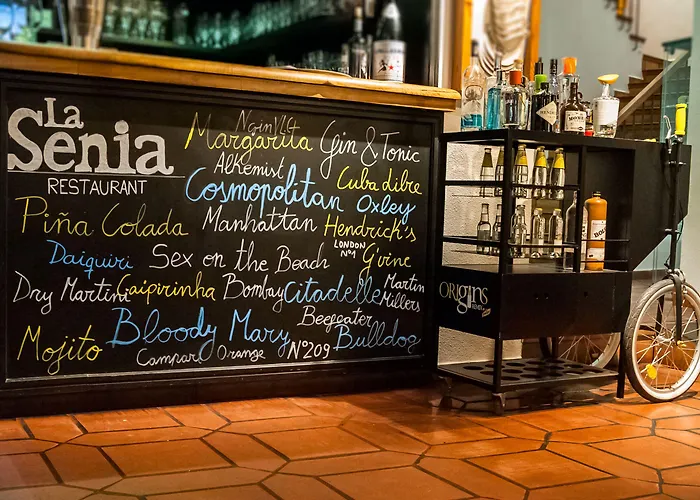 La Senia
RESTAURANT
NginVLG
Margarita Gin & Tonic
Alkemist
Cosmopolitan Cuba dibre
Oxley
Piña Colada Manhattan Hendrick's
Daiquiri Sex on the Beach LONDON Nº1 G'vine
Dry Martini Caipirinha Bombay Citadelle Martin Millers
Beefeater
Mojito Bloody Mary Bulldog
Campari Orange Nº209
ORIGINS